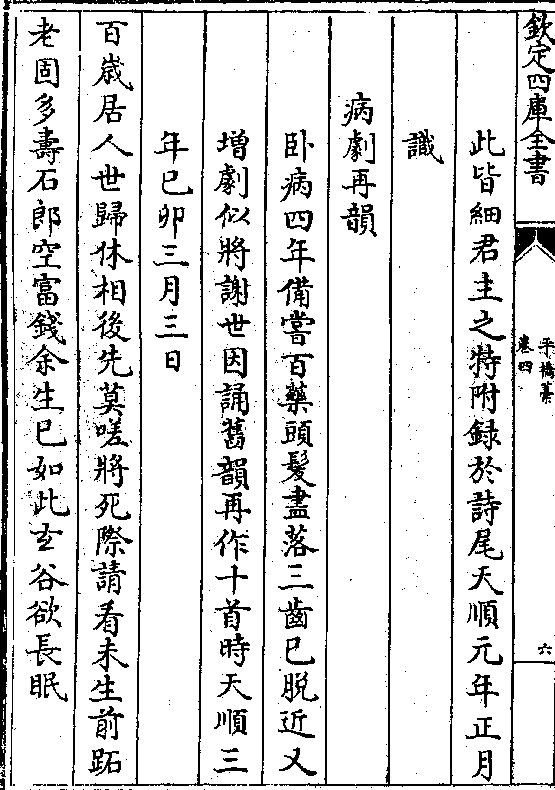 欽定四庫全書
平橋藁
卷四
六
此皆細君主之特附録於詩尾天順元年正月
識
病劇再韻
卧病四年備嘗百藥頭髮盡落三齒已脱近又
增劇似將謝世因誦舊韻再作十首時天順三
年已卯三月三日
百歲居人世歸休相後先莫嗟將死際請看未生前跖
老固多壽石郎空富錢余生已如此玄谷欲長眠